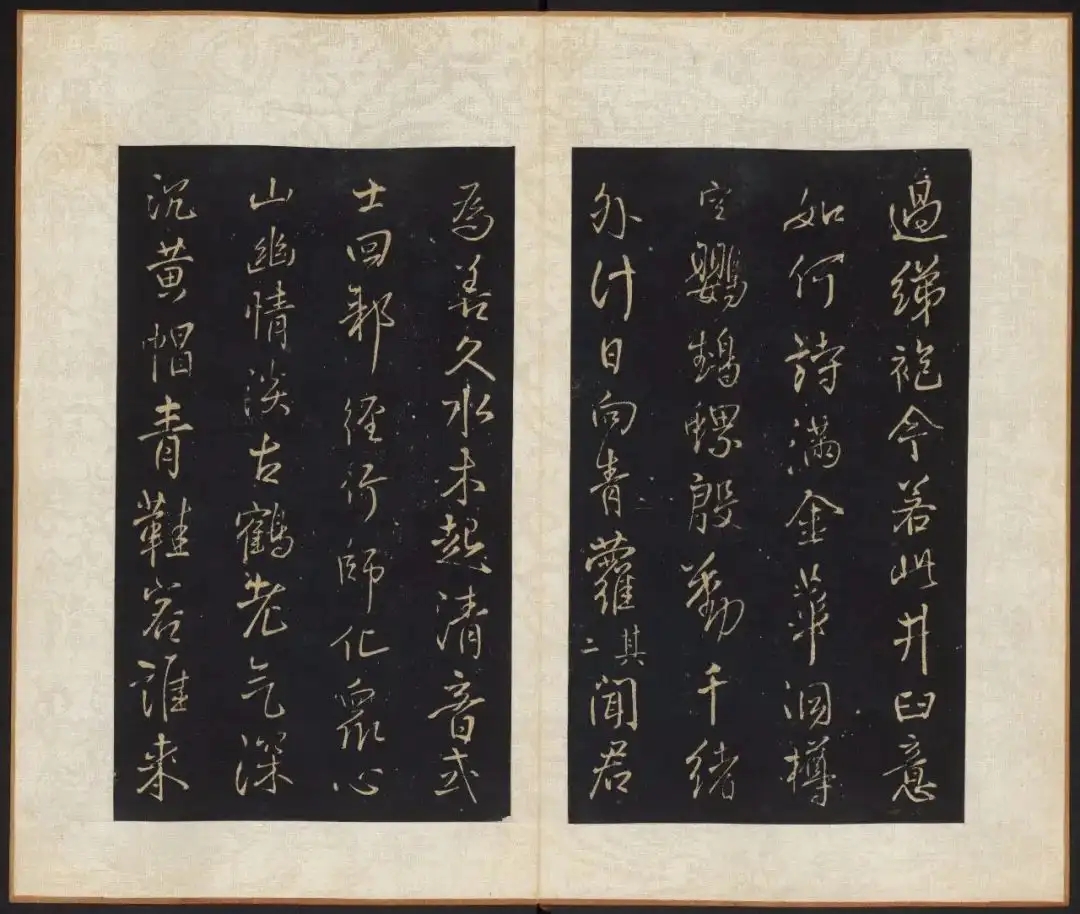 過綈袍今若此井臼意
如何詩滿金華洞樽
空鸚鵡螺殷勤千緒
外计日向青蘿其二聞君
為善久水木起清音式
士回鄰徑行師化眾心
山幽情淡古鶴老气深
沉黃帽青鞵客誰來